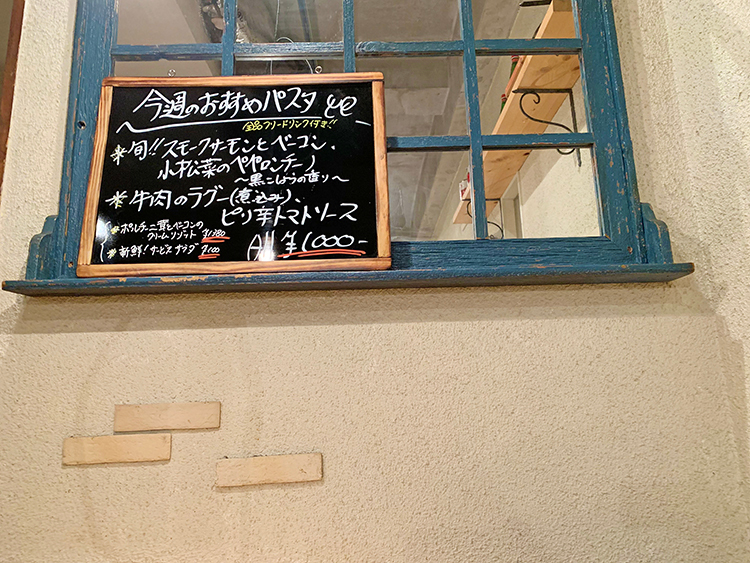 今週のおすすめパスタ etc
全品フリードリンク付き!!
＊旬!! スモークサーモンとベーコン、
小松菜のペペロンチーノ
～黒こしょうの香り～
＊牛肉のラグー(煮込み)、
ピリ辛トマトソース
＊ポルチーニ茸とベーコンの
クリームリゾット ¥1380
＊新鮮!サービスサラダ ¥100
All ¥1000-